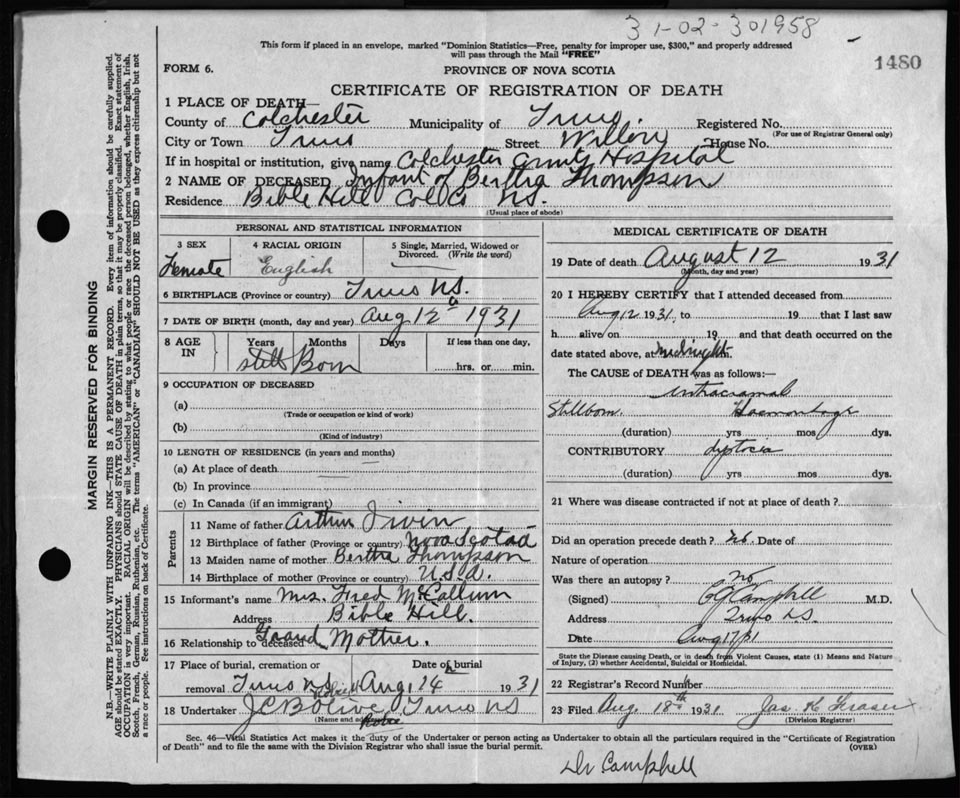 31-02-301958
This form if placed in an envelope, marked "Dominion Statistics—Free, penalty for improper use, $300," and properly addressed
will pass through the Mail "FREE"
1480
FORM 6.
PROVINCE OF NOVA SCOTIA
CERTIFICATE OF REGISTRATION OF DEATH
1 PLACE OF DEATH—
County of Colchester Municipality of Truro Registered No.
(For use of Registrar General only)
City or Town Truro Street Willow House No.
If in hospital or institution, give name Colchester County Hospital
2 NAME OF DECEASED Infant of Bertha Thompson
Residence Bible Hill Col Co NS.
(Usual place of abode)
PERSONAL AND STATISTICAL INFORMATION
3 SEX 4 RACIAL ORIGIN 5 Single, Married, Widowed or Divorced. (Write the word)
Female English
6 BIRTHPLACE (Province or country) Truro NS.
7 DATE OF BIRTH (month, day and year) Aug 12 1931
8 AGE IN Years Months Days If less than one day,
Still Born hrs. or min.
9 OCCUPATION OF DECEASED
(a)
(Trade or occupation or kind of work)
(b)
(Kind of industry)
10 LENGTH OF RESIDENCE (in years and months)
(a) At place of death
(b) In province
(c) In Canada (if an immigrant)
Parents
11 Name of father Arthur Irvin
12 Birthplace of father (Province or country) Nova Scotia
13 Maiden name of mother Bertha Thompson
14 Birthplace of mother (Province or country) U.S.A.
15 Informant's name Mrs. Fred McCallum
Address Bible Hill.
16 Relationship to deceased Grand Mother.
17 Place of burial, cremation or Date of burial
removal Truro NS Aug 14 1931
18 Undertaker J C B Olive Truro NS
(Name and address)
MEDICAL CERTIFICATE OF DEATH
19 Date of death August 12 1931
(Month, day and year)
20 I HEREBY CERTIFY that I attended deceased from
Aug 12 1931, to 19 that I last saw
h alive on 19 and that death occurred on the
date stated above, at midnight m.
The CAUSE of DEATH was as follows:—
intracranial
Stillborn. Haemorrhage
(duration) yrs mos dys.
CONTRIBUTORY dystocia
(duration) yrs mos dys.
21 Where was disease contracted if not at place of death?
Did an operation precede death? no. Date of
Nature of operation
Was there an autopsy? no
(Signed) Campbell M.D.
Address Truro NS.
Date Aug 17/31
State the Disease causing Death, or in death from Violent Causes, state (1) Means and Nature
of Injury, (2) whether Accidental, Suicidal or Homicidal.
22 Registrar's Record Number
23 Filed Aug 18th 1931 Jas. K Fraser
(Division Registrar)
Sec. 46—Vital Statistics Act makes it the duty of the Undertaker or person acting as Undertaker to obtain all the particulars required in the "Certificate of Registration
of Death" and to file the same with the Division Registrar who shall issue the burial permit.
(OVER)
Dr Campbell
MARGIN RESERVED FOR BINDING
N.B.—WRITE PLAINLY WITH UNFADING INK—THIS IS A PERMANENT RECORD. Every item of information should be carefully supplied.
AGE should be stated EXACTLY. PHYSICIANS should STATE CAUSE OF DEATH in plain terms, so that it may be properly classified. Exact statement of
OCCUPATION is very important. RACIAL ORIGIN will be described by stating to what people or race the deceased person belonged, whether English, Irish,
Scotch, French, German, Russian, Ruthenian, etc. The terms "AMERICAN" or "CANADIAN" SHOULD NOT BE USED as they express citizenship but not
a race or people. See instructions on back of Certificate.